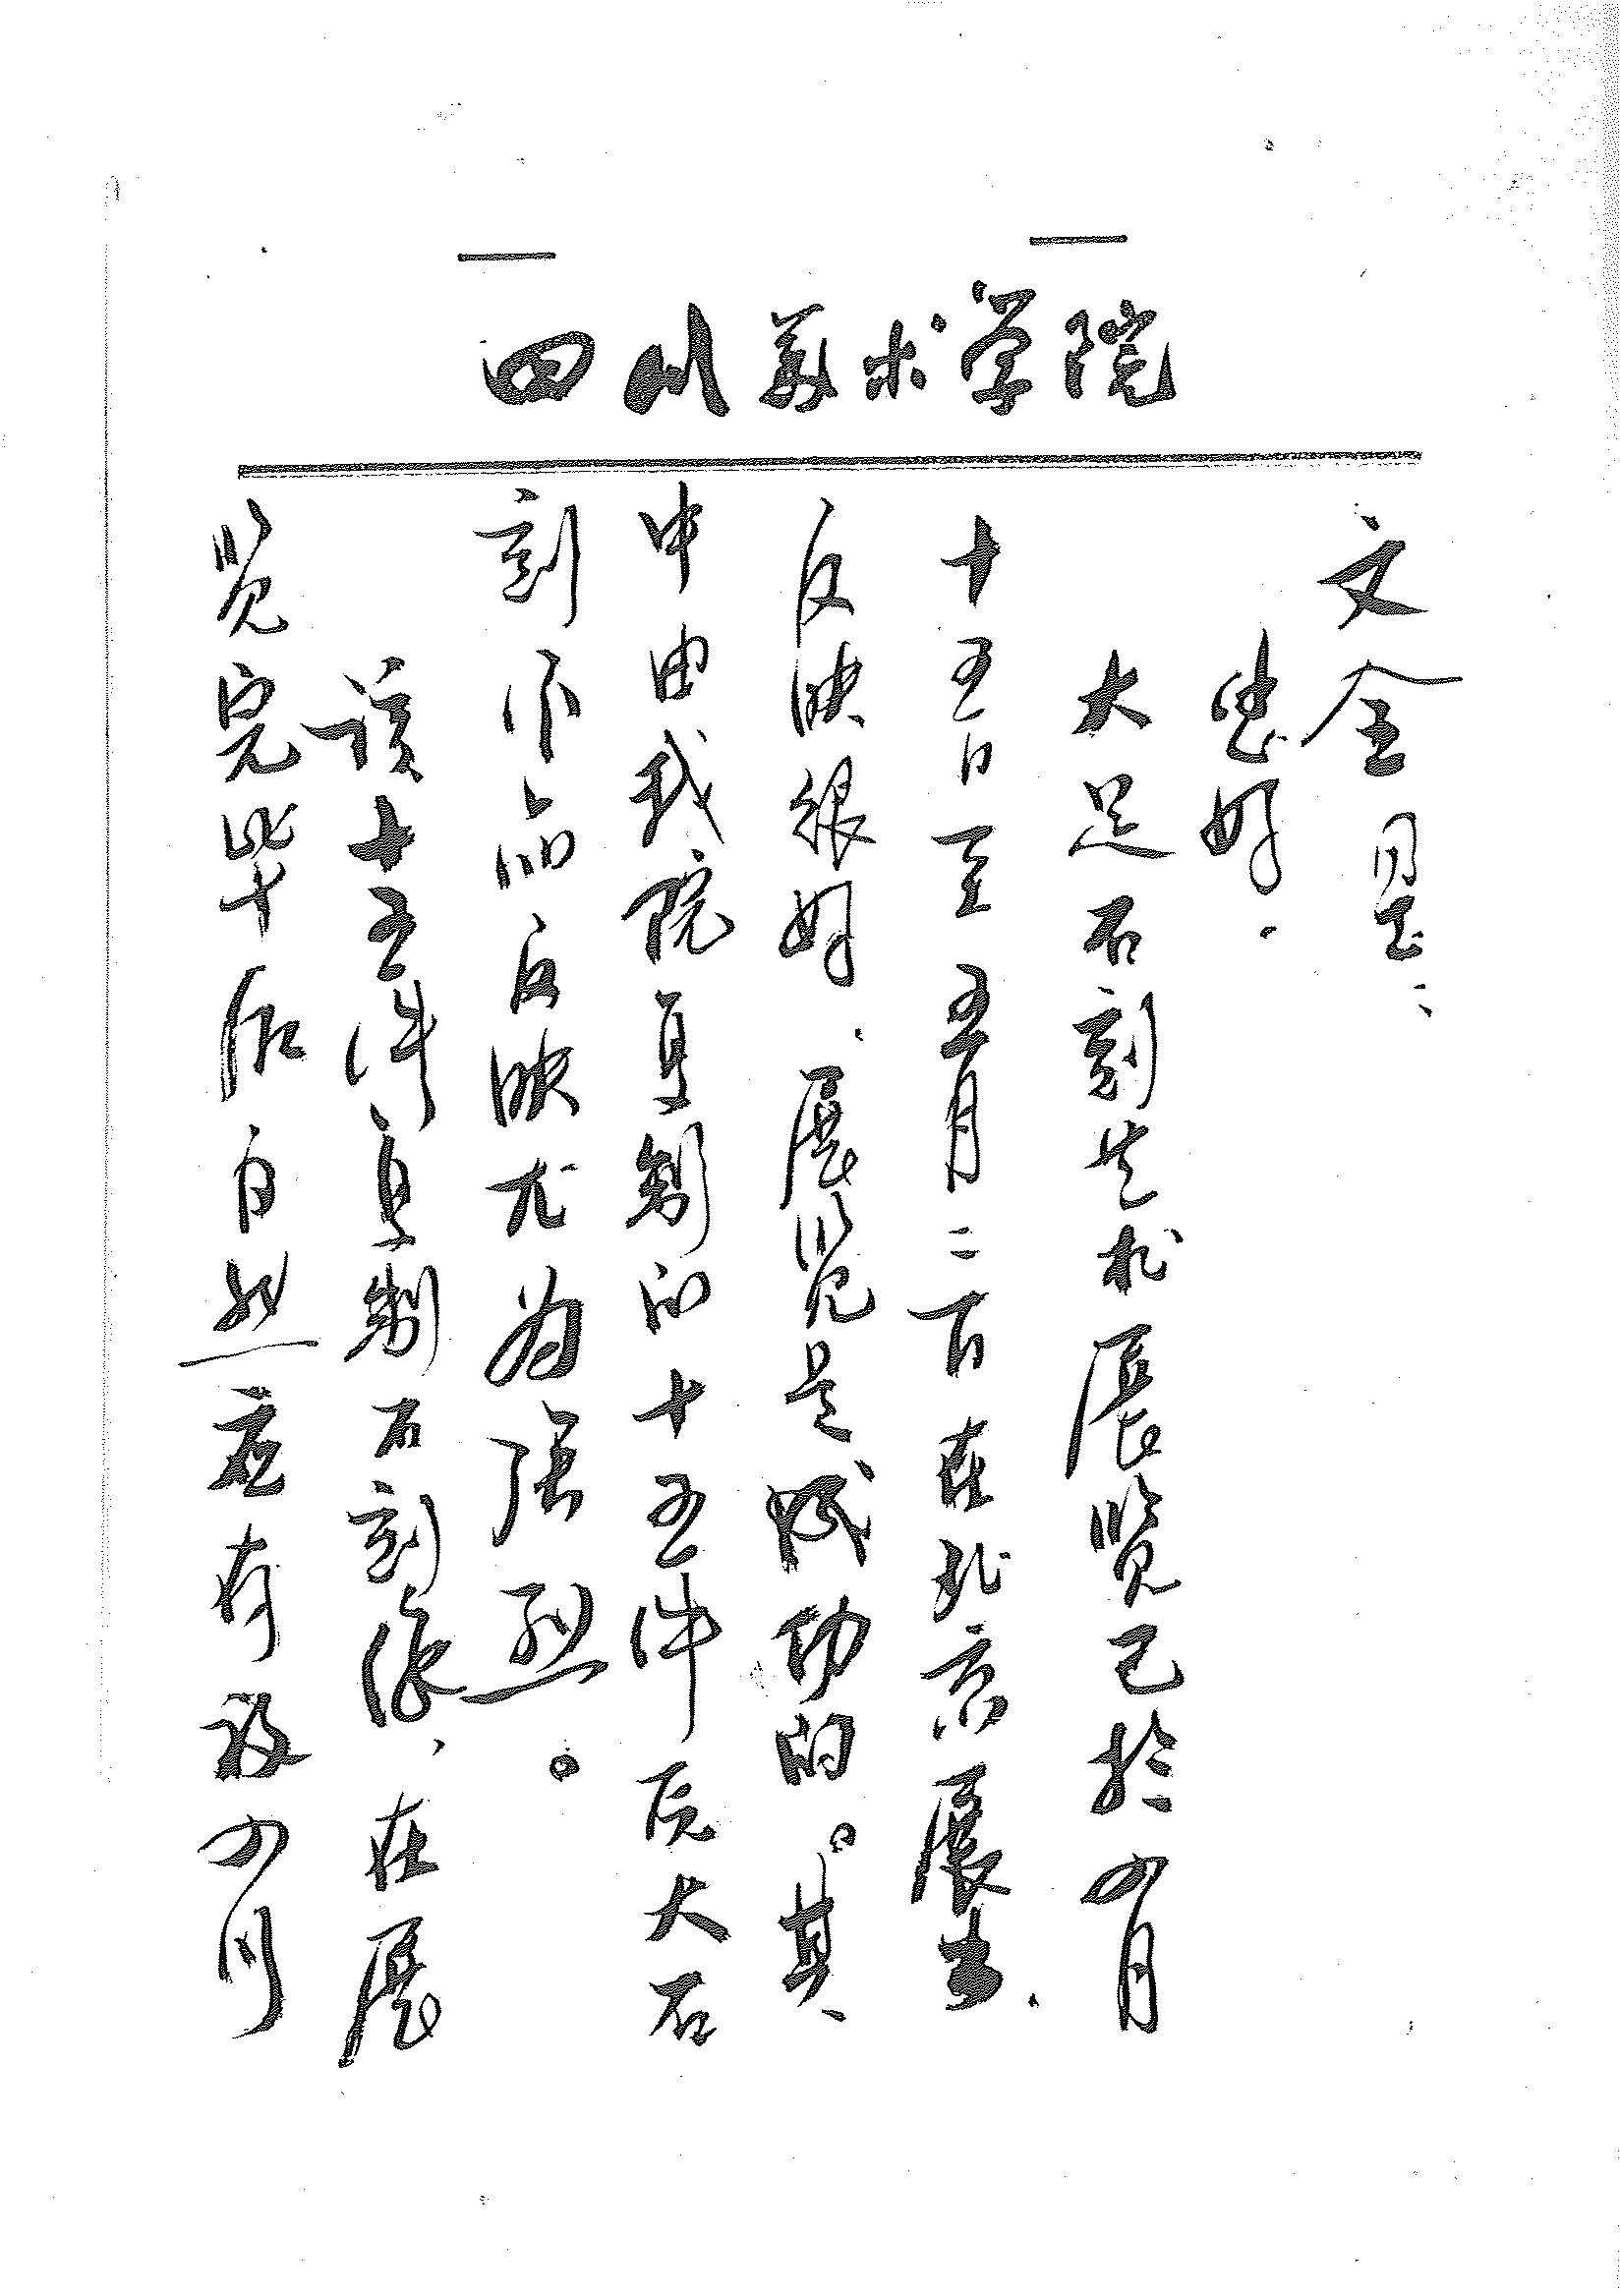 四川美术学院
文金同志:
您好.
大足石刻艺术展览已於四月
十五日至五月二十二日在北京展出.
反映很好.展览是成功的。其
中由我院复制的十五件反大石
刻作品反映尤为强烈。
该十五件复制石刻像、在展
览完毕后自然应存放四川